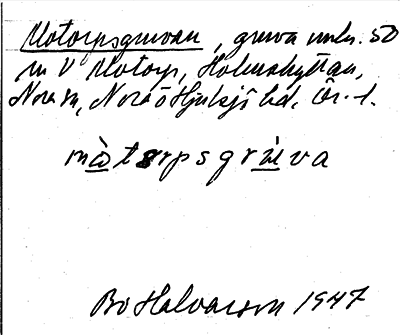 Motorpsgruvan, gruva unkr. 50
m V Motorp, Holmshyttan,
Nora sn, Nora o Hjulsjö bd, Ör. l.
mòtorpsgrúva
Bo Halvarson 1947